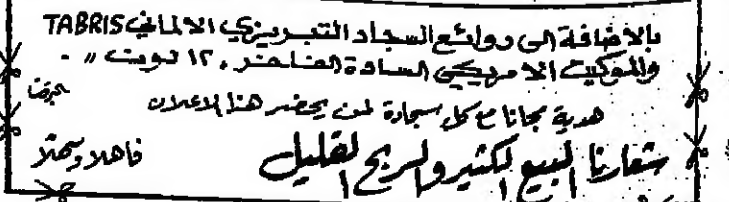 بالاضافة الى روائع السجاد التبريزي الالماني TABRIS
والموكيت الامريكي السادة الفاخر . ١٢ لويت " -
هدية مجانا مع كل سجادة لمن يحضر هذا الاعلان
شعارنا البيع الكثير والربح القليل فاهلا وسهلا